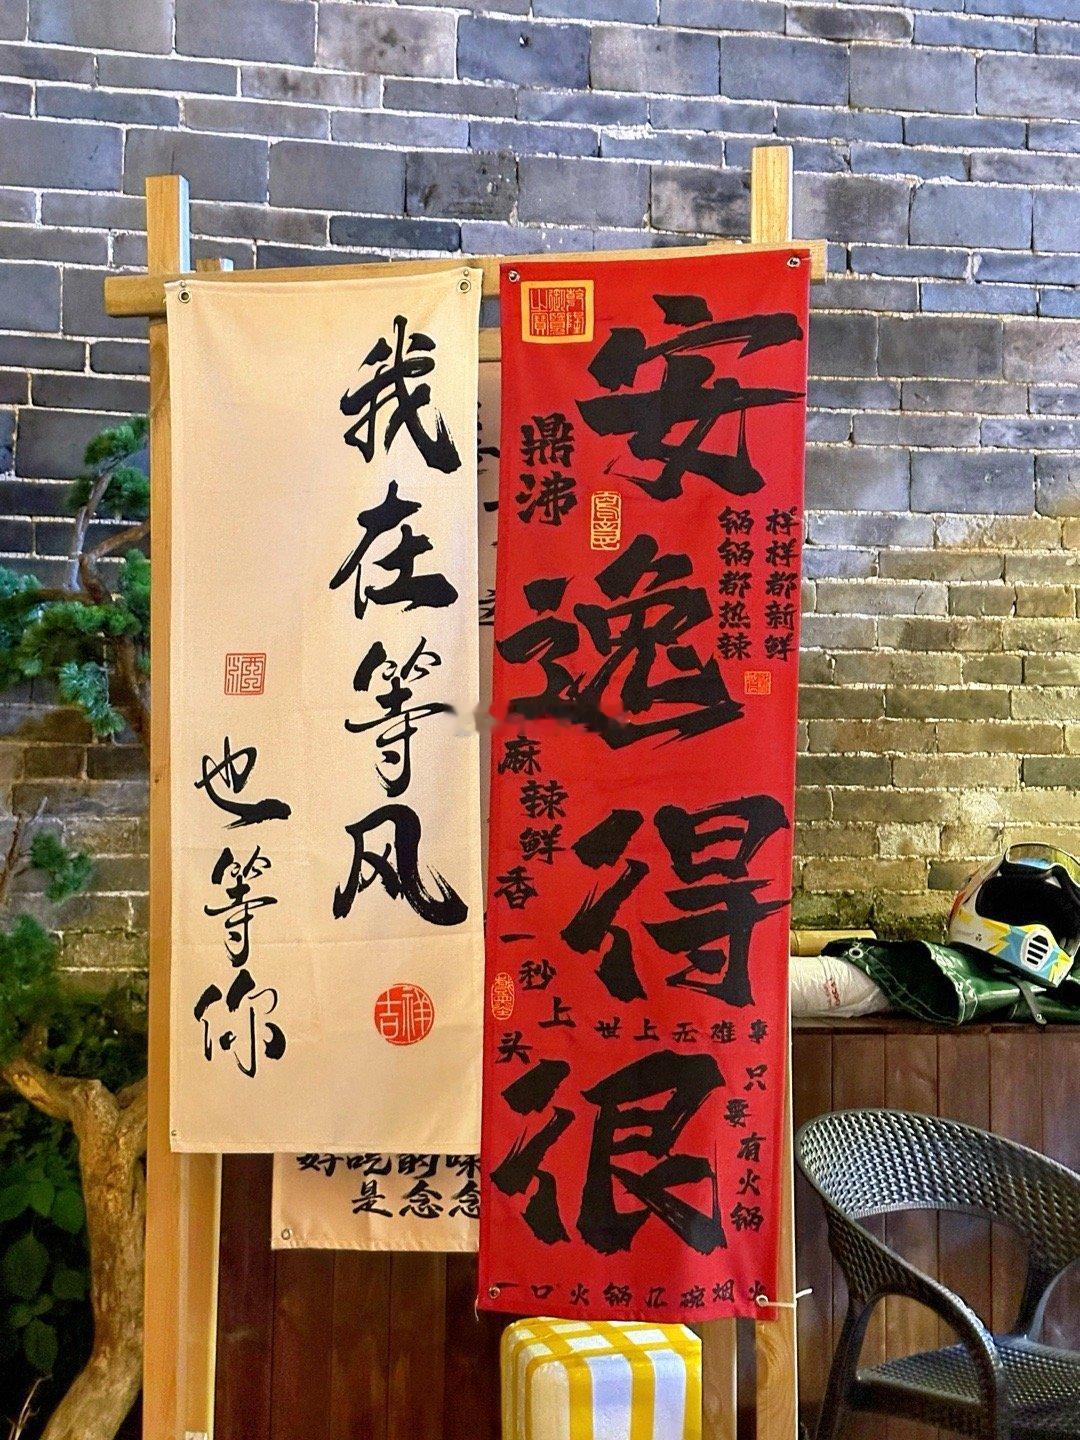 我在等风
也等你
吉祥
安逸得很
乾隆御览之宝
鼎沸
样样都新鲜
锅锅都热辣
麻辣鲜香一秒上头
世上无难事
只要有火锅
一口火锅几碗烟火
好吃的味
是念念